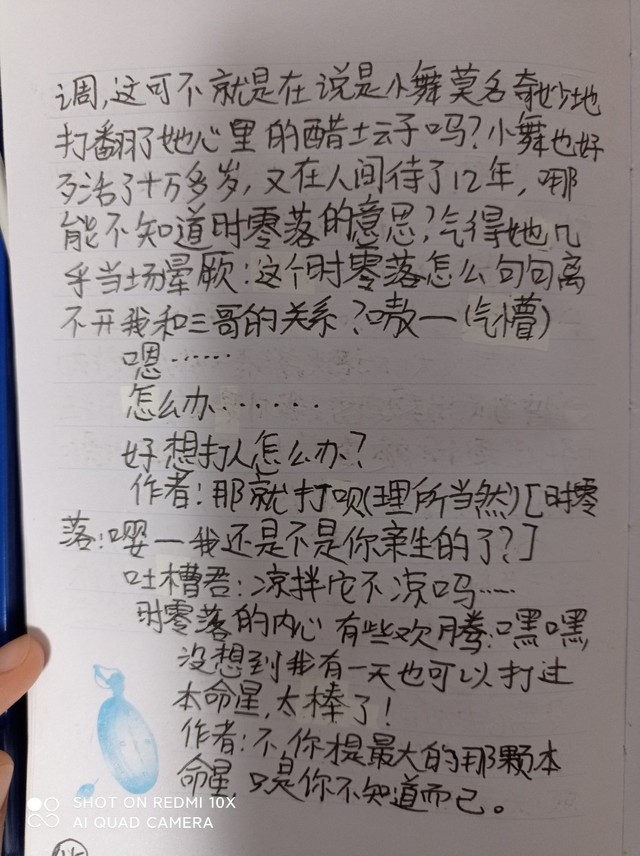 调,这可不就是在说是小舞莫名奇妙地
打翻了她心里的醋坛子吗?小舞也好
歹活了十万多岁,又在人间待了12年,哪
能不知道时零落的意思?气得她几
乎当场晕厥:这个时零落怎么句句离
不开我和三哥的关系?嗷一(气懵)
嗯……
怎么办……
好想打人怎么办?
作者:那就打呗(理所当然)[时零
落:嘤一我还是不是你亲生的了?]
吐槽君:凉拌它不凉吗……
时零落的内心有些欢腾:嘿嘿,
没想到我有一天也可以打过
本命星,太棒了!
作者:不,你才是最大的那颗本
命星,只是你不知道而已。
SHOT ON REDMI 10X
AI QUAD CAMERA